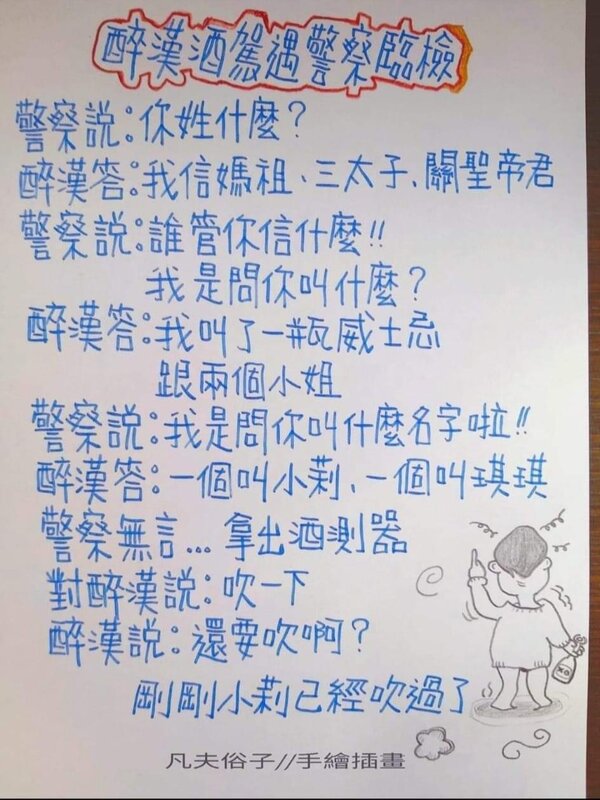 醉漢酒駕遇警察臨檢
警察説：你姓什麼？
醉漢答：我信媽祖、三太子、關聖帝君
警察説：誰管你信什麼!!
我是問你叫什麼？
醉漢答：我叫了一瓶威士忌
跟兩個小姐
警察説：我是問你叫什麼名字啦!!
醉漢答：一個叫小莉、一個叫琪琪
警察無言... 拿出酒測器
對醉漢説：吹一下
醉漢説：還要吹啊？
剛剛小莉已經吹過了
凡夫俗子//手繪插畫